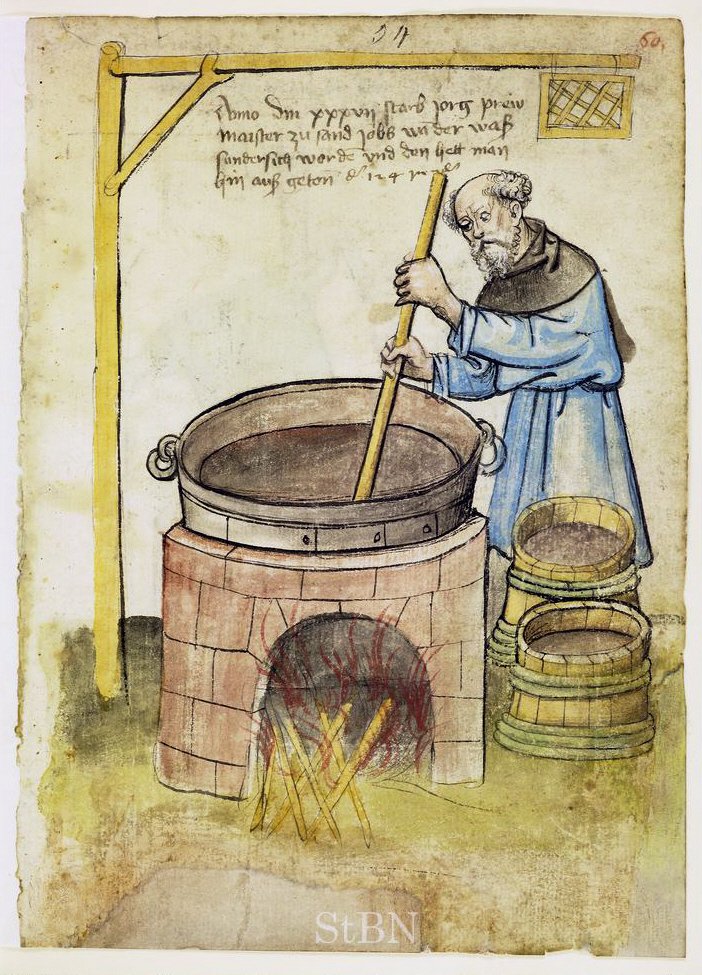 54
60.
Anno dm xxxvii starb jorg prew
maister zu sand jobs wa der waß
sundersich worde vnd den hett man
hin auß geton
StBN